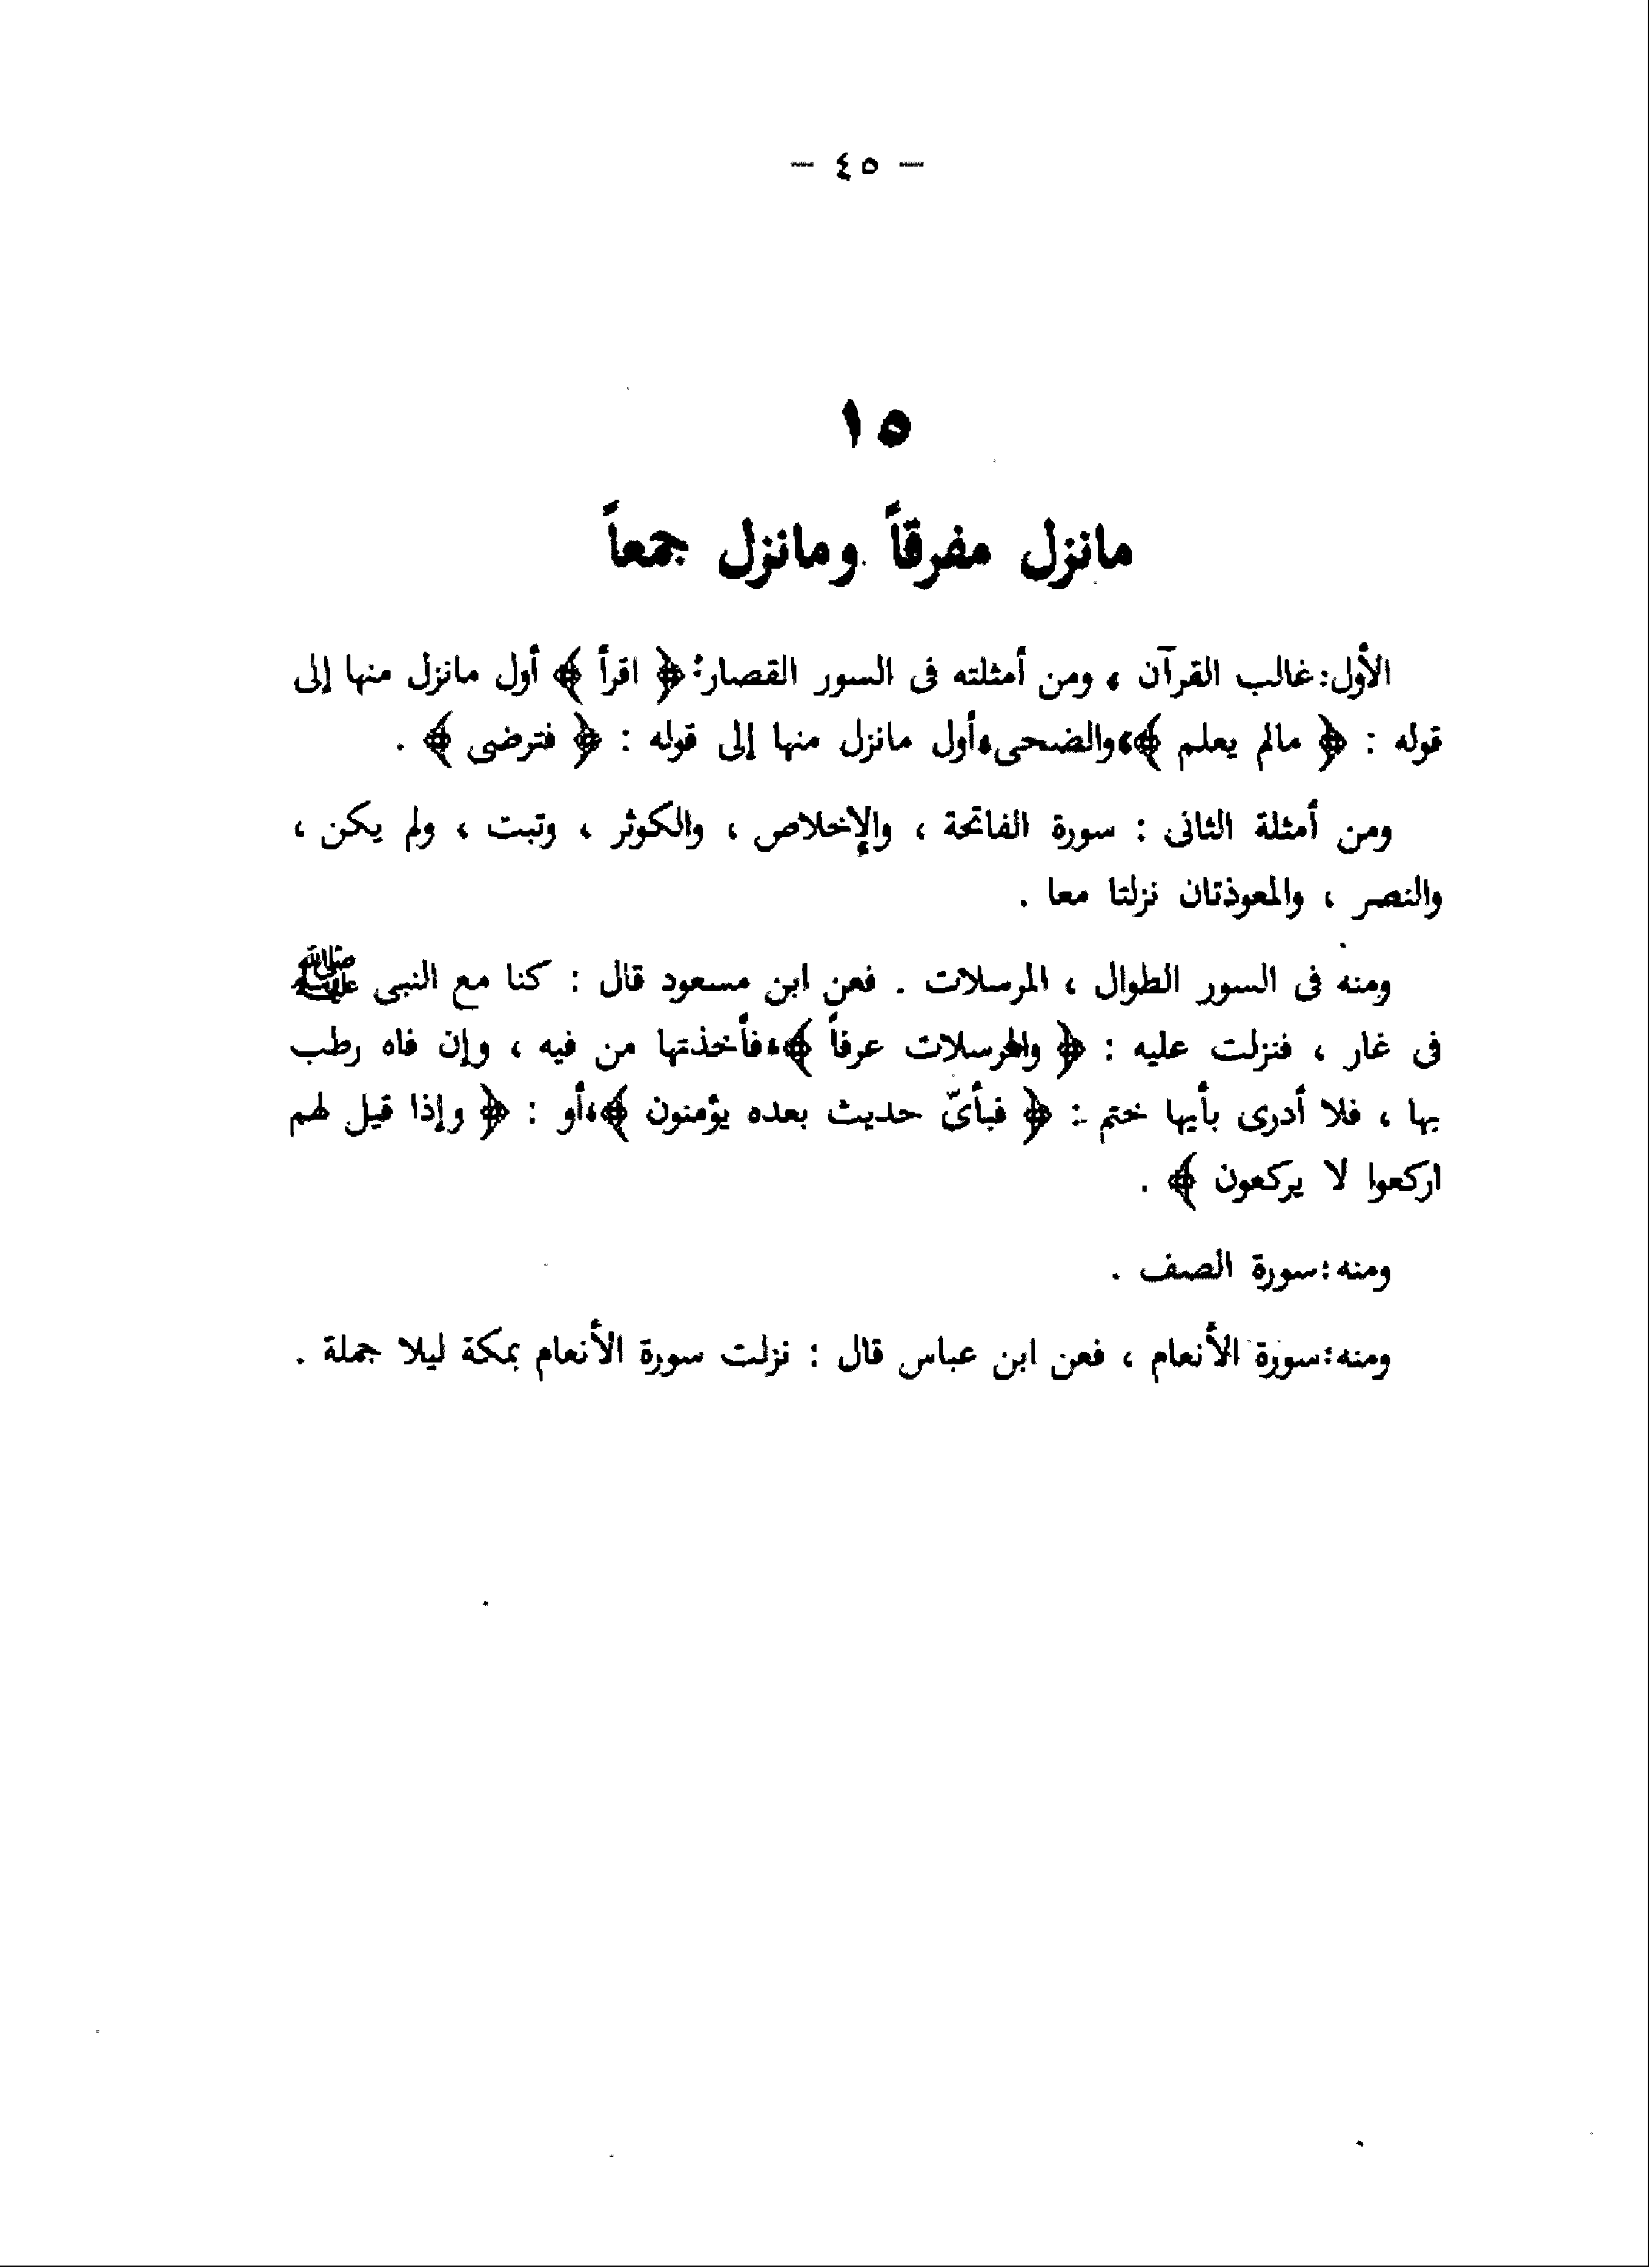 — ٤٥ —
١٥
مانزل مفرقاً ومانزل جمعاً
الأول:غالب القرآن ، ومن أمثلته فى السور القصار:﴿ اقرأ ﴾ أول مانزل منها إلى
قوله : ﴿ مالم يعلم ﴾،والضحى،أول مانزل منها إلى قوله : ﴿ فترضى ﴾ .
ومن أمثلة الثانى : سورة الفاتحة ، والإخلاص ، والكوثر ، وتبت ، ولم يكن ،
والنصر ، والمعوذتان نزلتا معا .
ومنه فى السور الطوال ، المرسلات . فعن ابن مسعود قال : كنا مع النبى ﷺ
فى غار ، فنزلت عليه : ﴿ والمرسلات عرفاً ﴾،فأخذتها من فيه ، وإن فاه رطب
بها ، فلا أدرى بأيها ختم : ﴿ فبأىّ حديث بعده يؤمنون ﴾،أو : ﴿ وإذا قيل لهم
اركعوا لا يركعون ﴾ .
ومنه:سورة الصف .
ومنه:سورة الأنعام ، فعن ابن عباس قال : نزلت سورة الأنعام بمكة ليلا جملة .